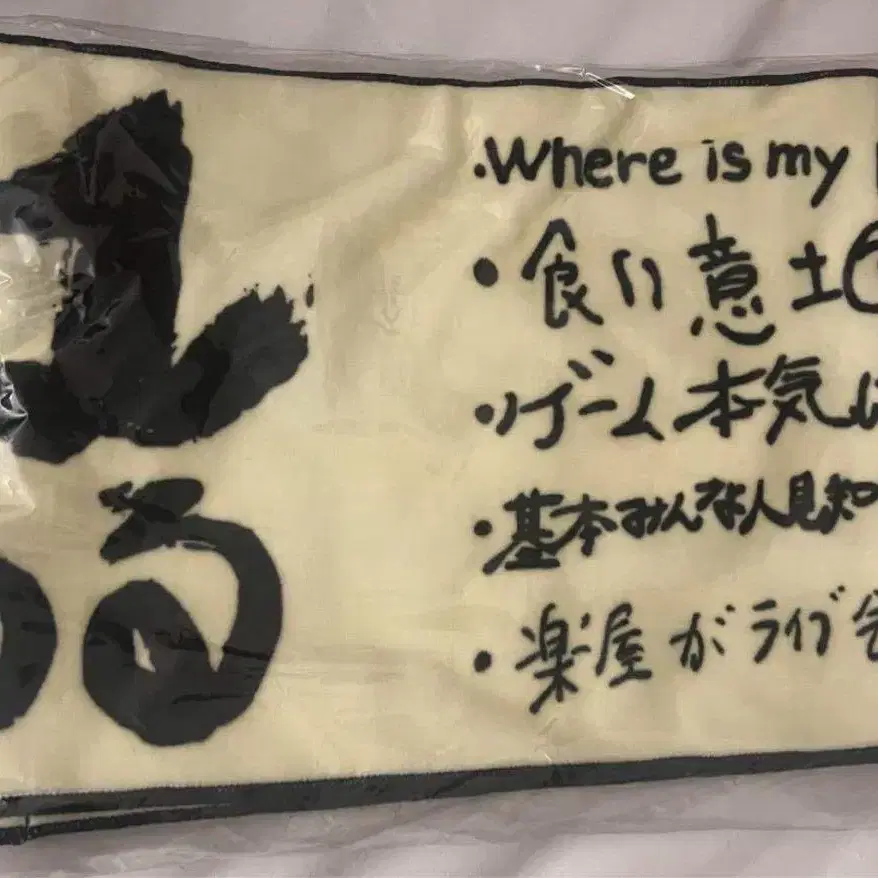 ・Where is my
・食い意土
・ゲーム本気
・基本みんな人見知
・楽屋がライブ会